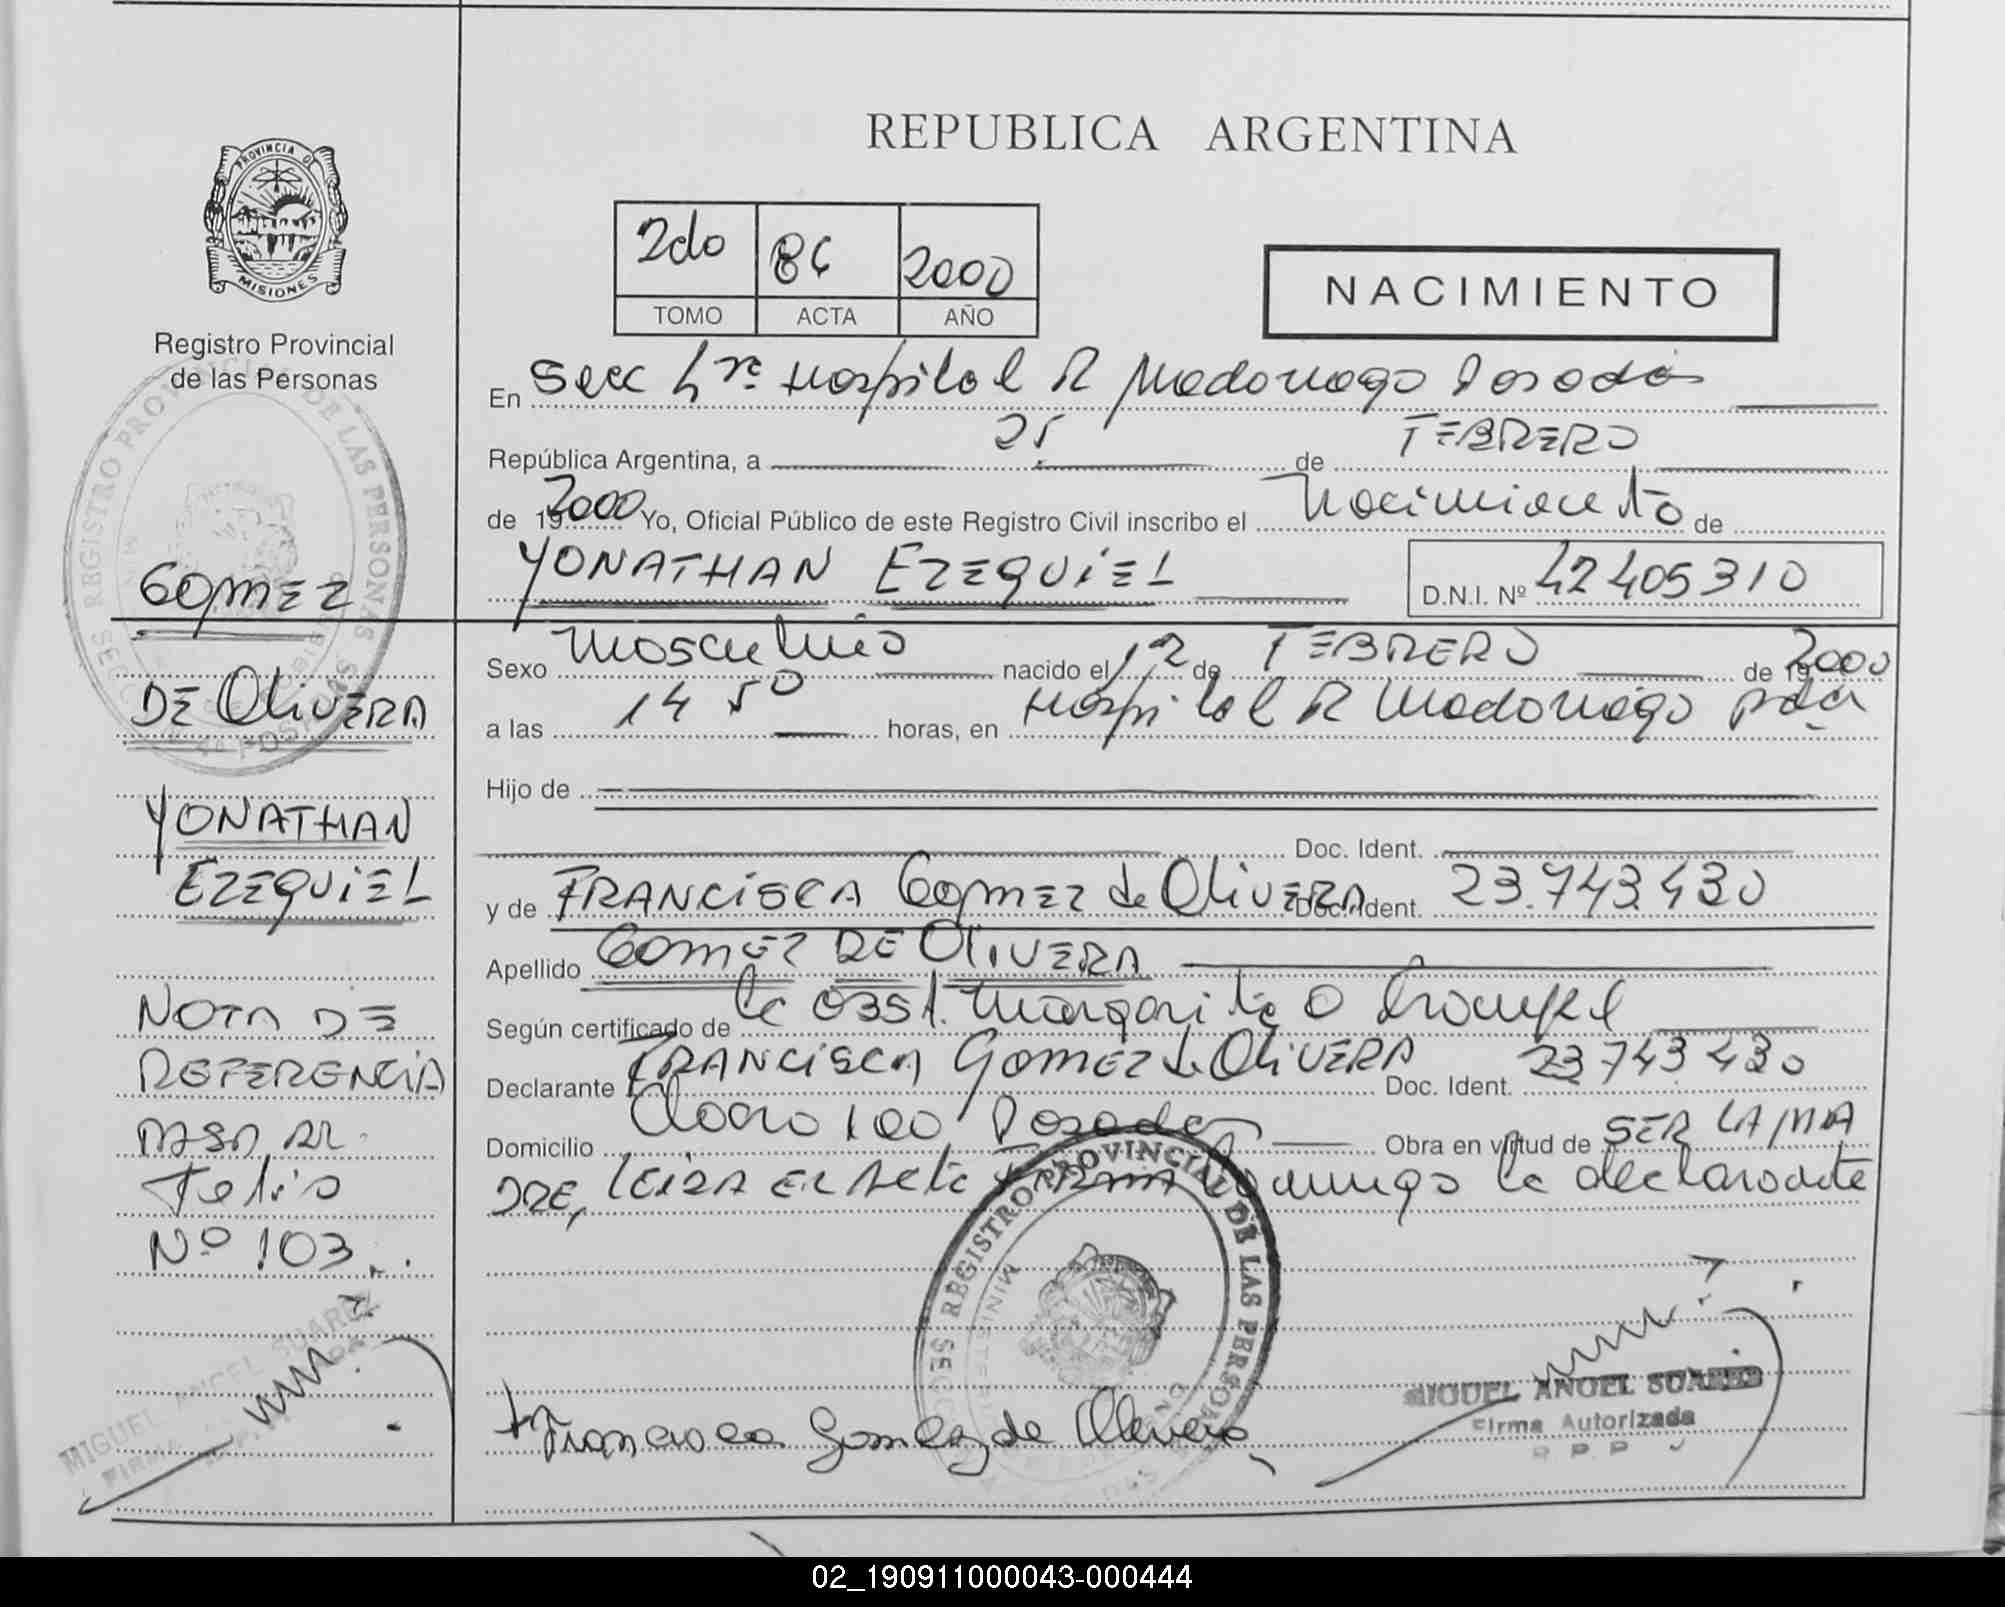 REPUBLICA ARGENTINA
PROVINCIA D
MISIONES
Registro Provincial
de las Personas
2do 86 2000
TOMO ACTA AÑO
NACIMIENTO
En Secc Hospital R Madariaga Posadas
República Argentina, a 25 de FEBRERO
de 19 2000 Yo, Oficial Público de este Registro Civil inscribo el Nacimiento de
YONATHAN EZEQUIEL D.N.I. Nº 42405310
Sexo Masculino nacido el 12 de FEBRERO de 19 2000
a las 14 50 horas, en Hospital R Madariaga pdas
Hijo de
Doc. Ident.
y de FRANCISCA Gomez de OliVERA Doc. Ident. 23.743.430
Apellido GOMEZ DE OliVERA
Según certificado de la Obst. Margarita O
Declarante FRANCISCA GOMEZ de OliVERA Doc. Ident. 23 743 430
Domicilio Posadas Obra en virtud de SER LA MA
DRE, leida el Acta firma conmigo la declarante
Francisca Gomez de Olivera
REGISTRO PROVINCIAL DE LAS PERSONAS
MIGUEL ANGEL SUAREZ
Firma Autorizada
R P P
GOMEZ
DE OliVERA
YONATHAN
EZEQUIEL
NOTA DE
REFERENCIA
PASA AL
Folio
Nº 103
REGISTRO PROVINCIAL DE LAS PERSONAS
POSADAS
MIGUEL ANGEL SUAREZ
FIRMA
02_190911000043-000444